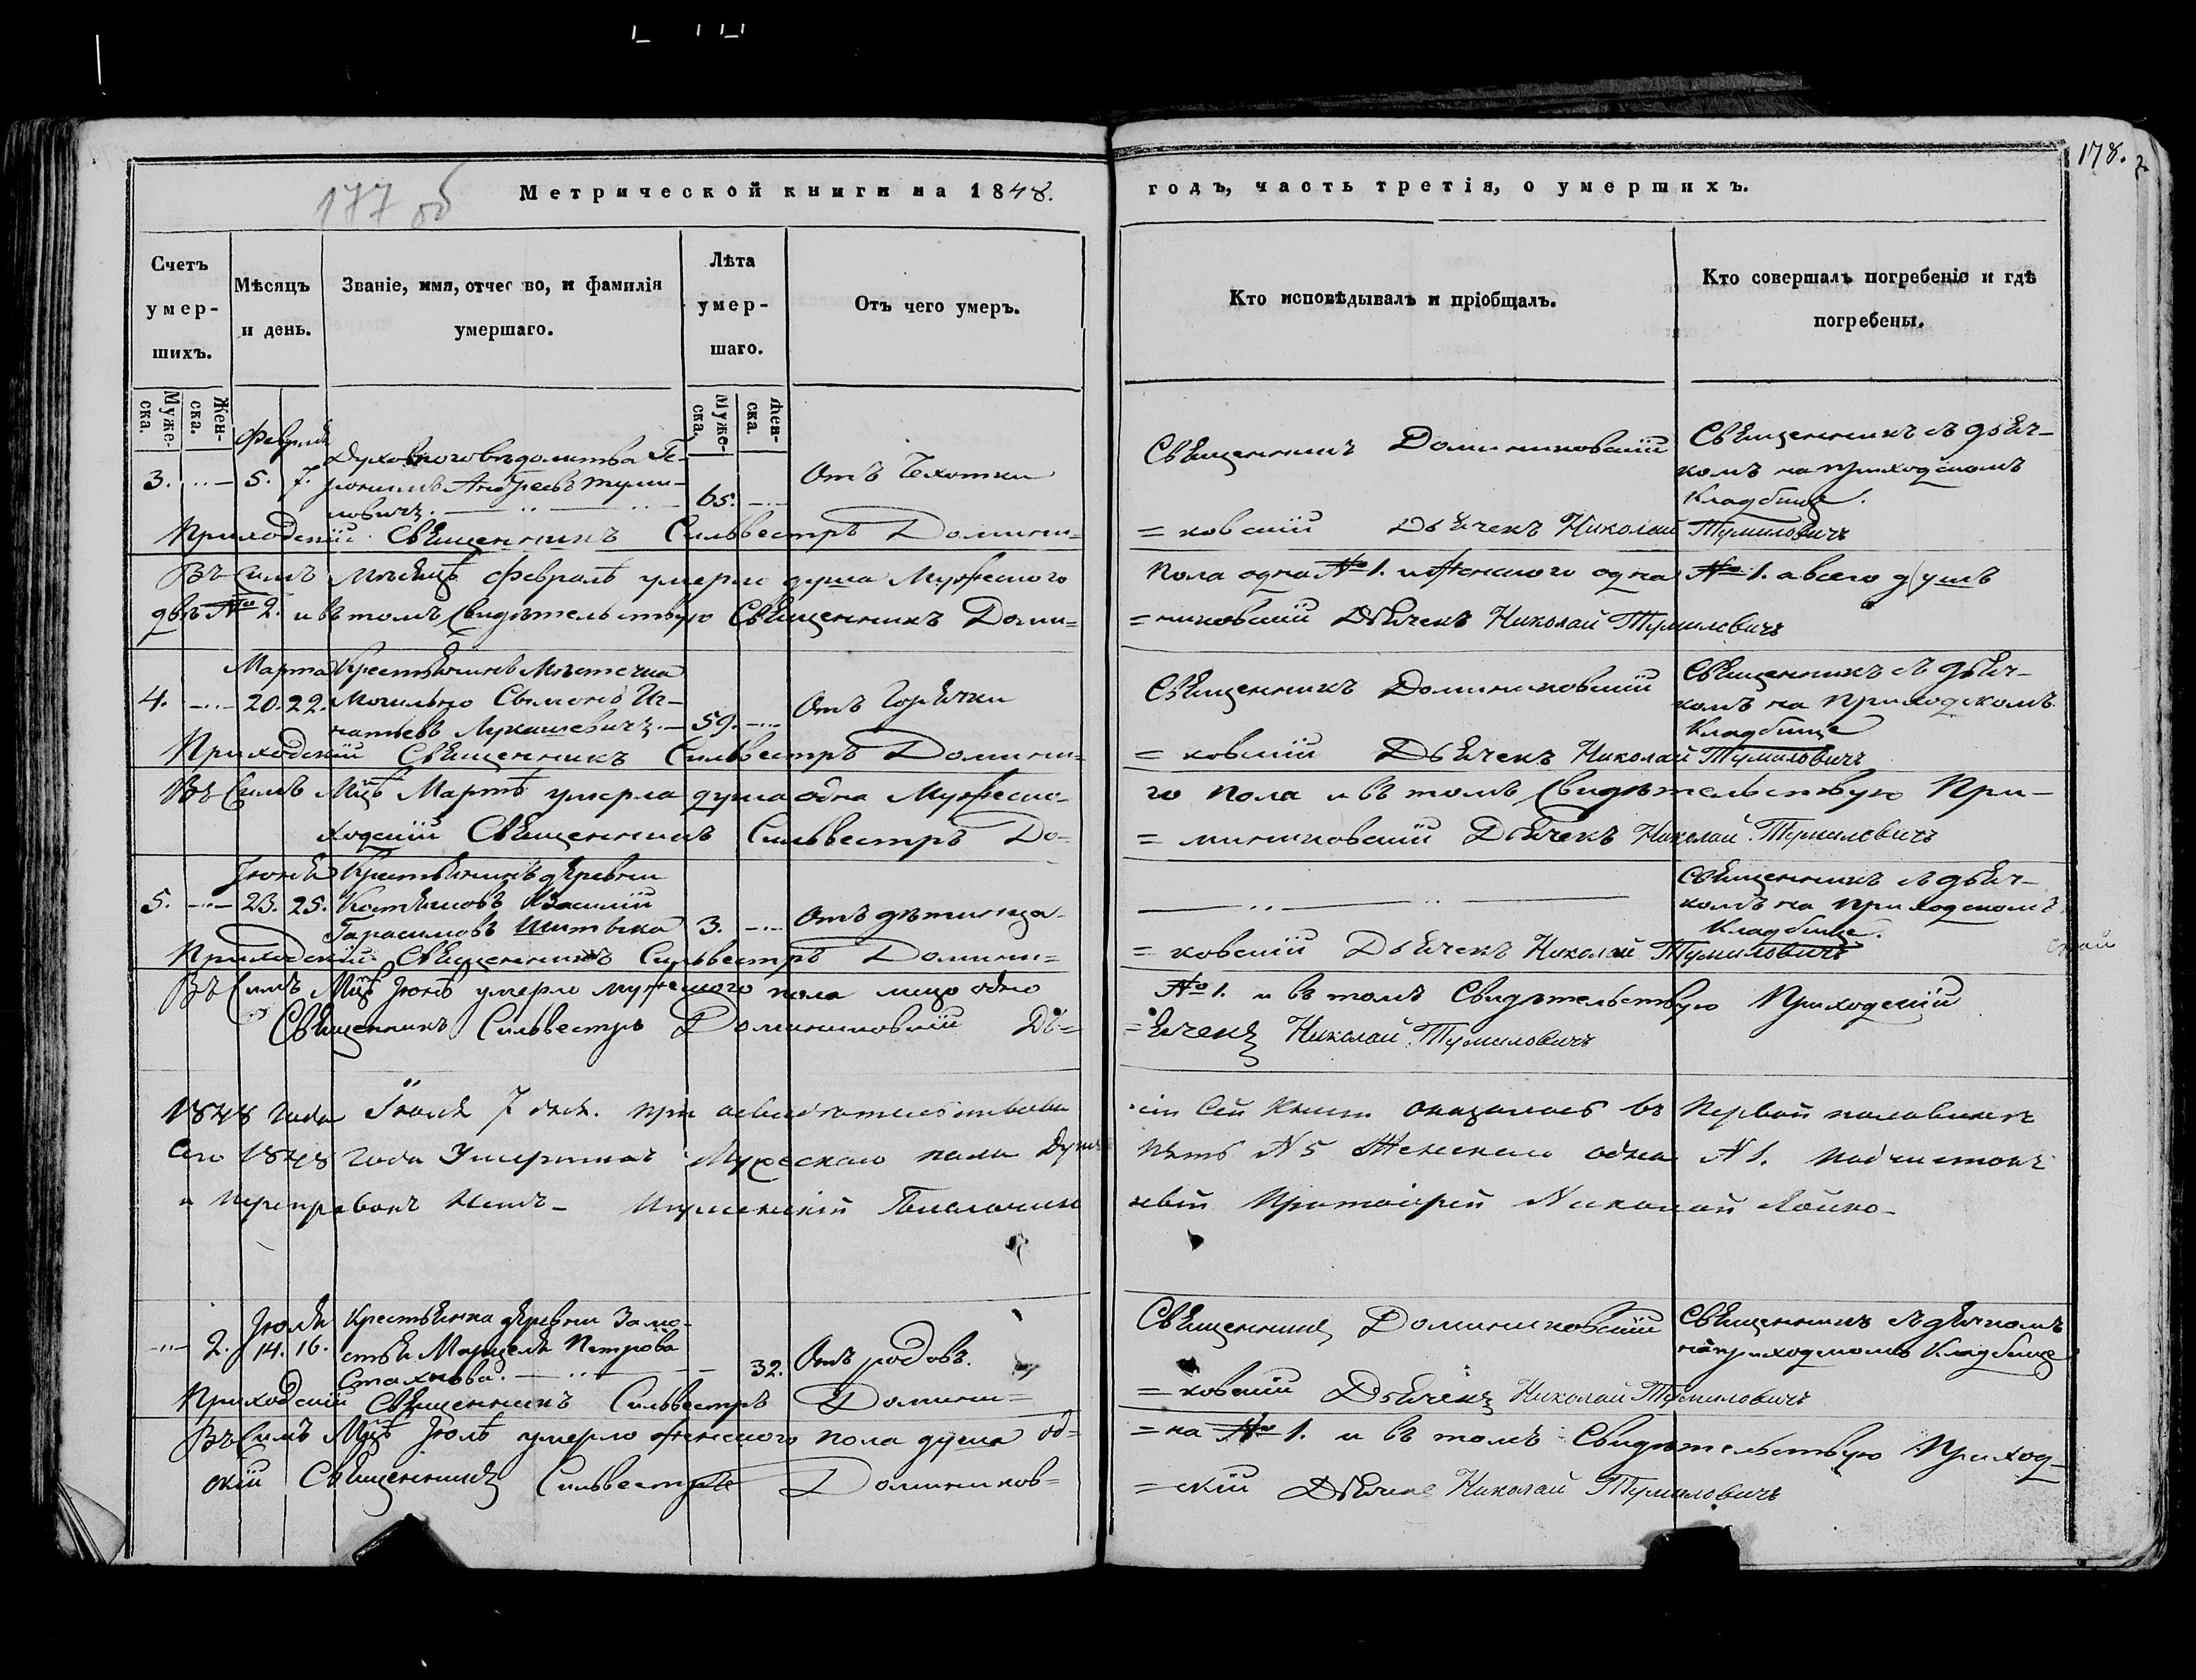 177 об
178.
Метрической книги на 1848.
годъ, часть третія, о умершихъ.
Счетъ умер-шихъ.
Мѣсяцъ и день.
Званіе, имя, отчество, и фамилія умершаго.
Лѣта умер-шаго.
Отъ чего умеръ.
Кто исповѣдывалъ и пріобщалъ.
Кто совершалъ погребеніе и гдѣ погребены.
Муже-ска.
Жен-ска.
Муже-ска.
Жен-ска.
Февраля
3. 5. 7.
Духовного вѣдомства Ге-
ронимъ Андреевъ Туми-
ловичъ.
65.
Отъ Чехотки
Священникъ Доминиковскій
Священникъ съ дьяч-
комъ на приходскомъ
Кладбище.
Приходскій Священникъ Сильвестръ Домини=
=ковскій Дьячекъ Николай Тумиловичъ
Въ Симъ Мѣсяцѣ Февралѣ умерло душа Мужеского
пола одна № 1. и женского одна № 1. а всего душъ
двѣ № 2. и въ томъ Свидѣтельствую Священникъ Доми=
=никовскій Дьячекъ Николай Тумиловичъ
Марта
4. 20. 22.
Крестьянинъ Мѣстечка
Могильно Сымонъ Иг-
натьевъ Лукашевичъ.
59.
Отъ Горячки
Священникъ Доминиковскій
Священникъ съ дьяч-
комъ на приходскомъ
Кладбище
Приходскій Священникъ Сильвестръ Домини-
=ковскій Дьячекъ Николай Тумиловичъ
Въ Симъ Мцѣ Мартѣ умерла душа одна Мужеско-
го пола и въ томъ Свидѣтельствую При-
ходскій Священникъ Сильвестръ До-
=миниковскій Дьячекъ Николай Тумиловичъ
Іюня
5. 23. 25.
Крестьянинъ деревни
Василій
Гарасимовъ Шитыка
3.
Отъ дѣтинца.
Священникъ съ дьяч-
комъ на приходскомъ
Кладбище.
Приходскій Священникъ Сильвестръ Домини=
=ковскій Дьячекъ Николай Тумиловичъ
Въ Симъ Мцѣ Іюнѣ умерло мужеского пола лицо одно
№ 1. и въ томъ Свидѣтельствую Приходскій
Священникъ Сильвестръ Доминиковскій Дь=
=ячекъ Николай Тумиловичъ
1848 года Іюля 7 дня. при освидѣтельствова
ніи Сей Книги оказалось въ Первой половинѣ
Сего 1848 года Умершихъ Мужескаго пола душъ
пять N 5 Женскаго одна N 1. подчистокъ
и переправокъ нѣтъ-
Протоіерей Николай
Іюля
2. 14. 16.
Крестьянка деревни Замо-
стья Марцеля Петрова
Стахнова.
32.
Отъ родовъ.
Священникъ Доминиковскій
Священникъ съ дьячкомъ
на приходскомъ Кладбище
Приходскій Священникъ Сильвестръ Домини=
=ковскій Дьячекъ Николай Тумиловичъ
Въ Симъ Мцѣ Іюлѣ умерло женского пола душа од=
=на № 1. и въ томъ Свидѣтельствую Приход-
скій Священникъ Сильвестръ Домиников=
=скій Дьячекъ Николай Тумиловичъ